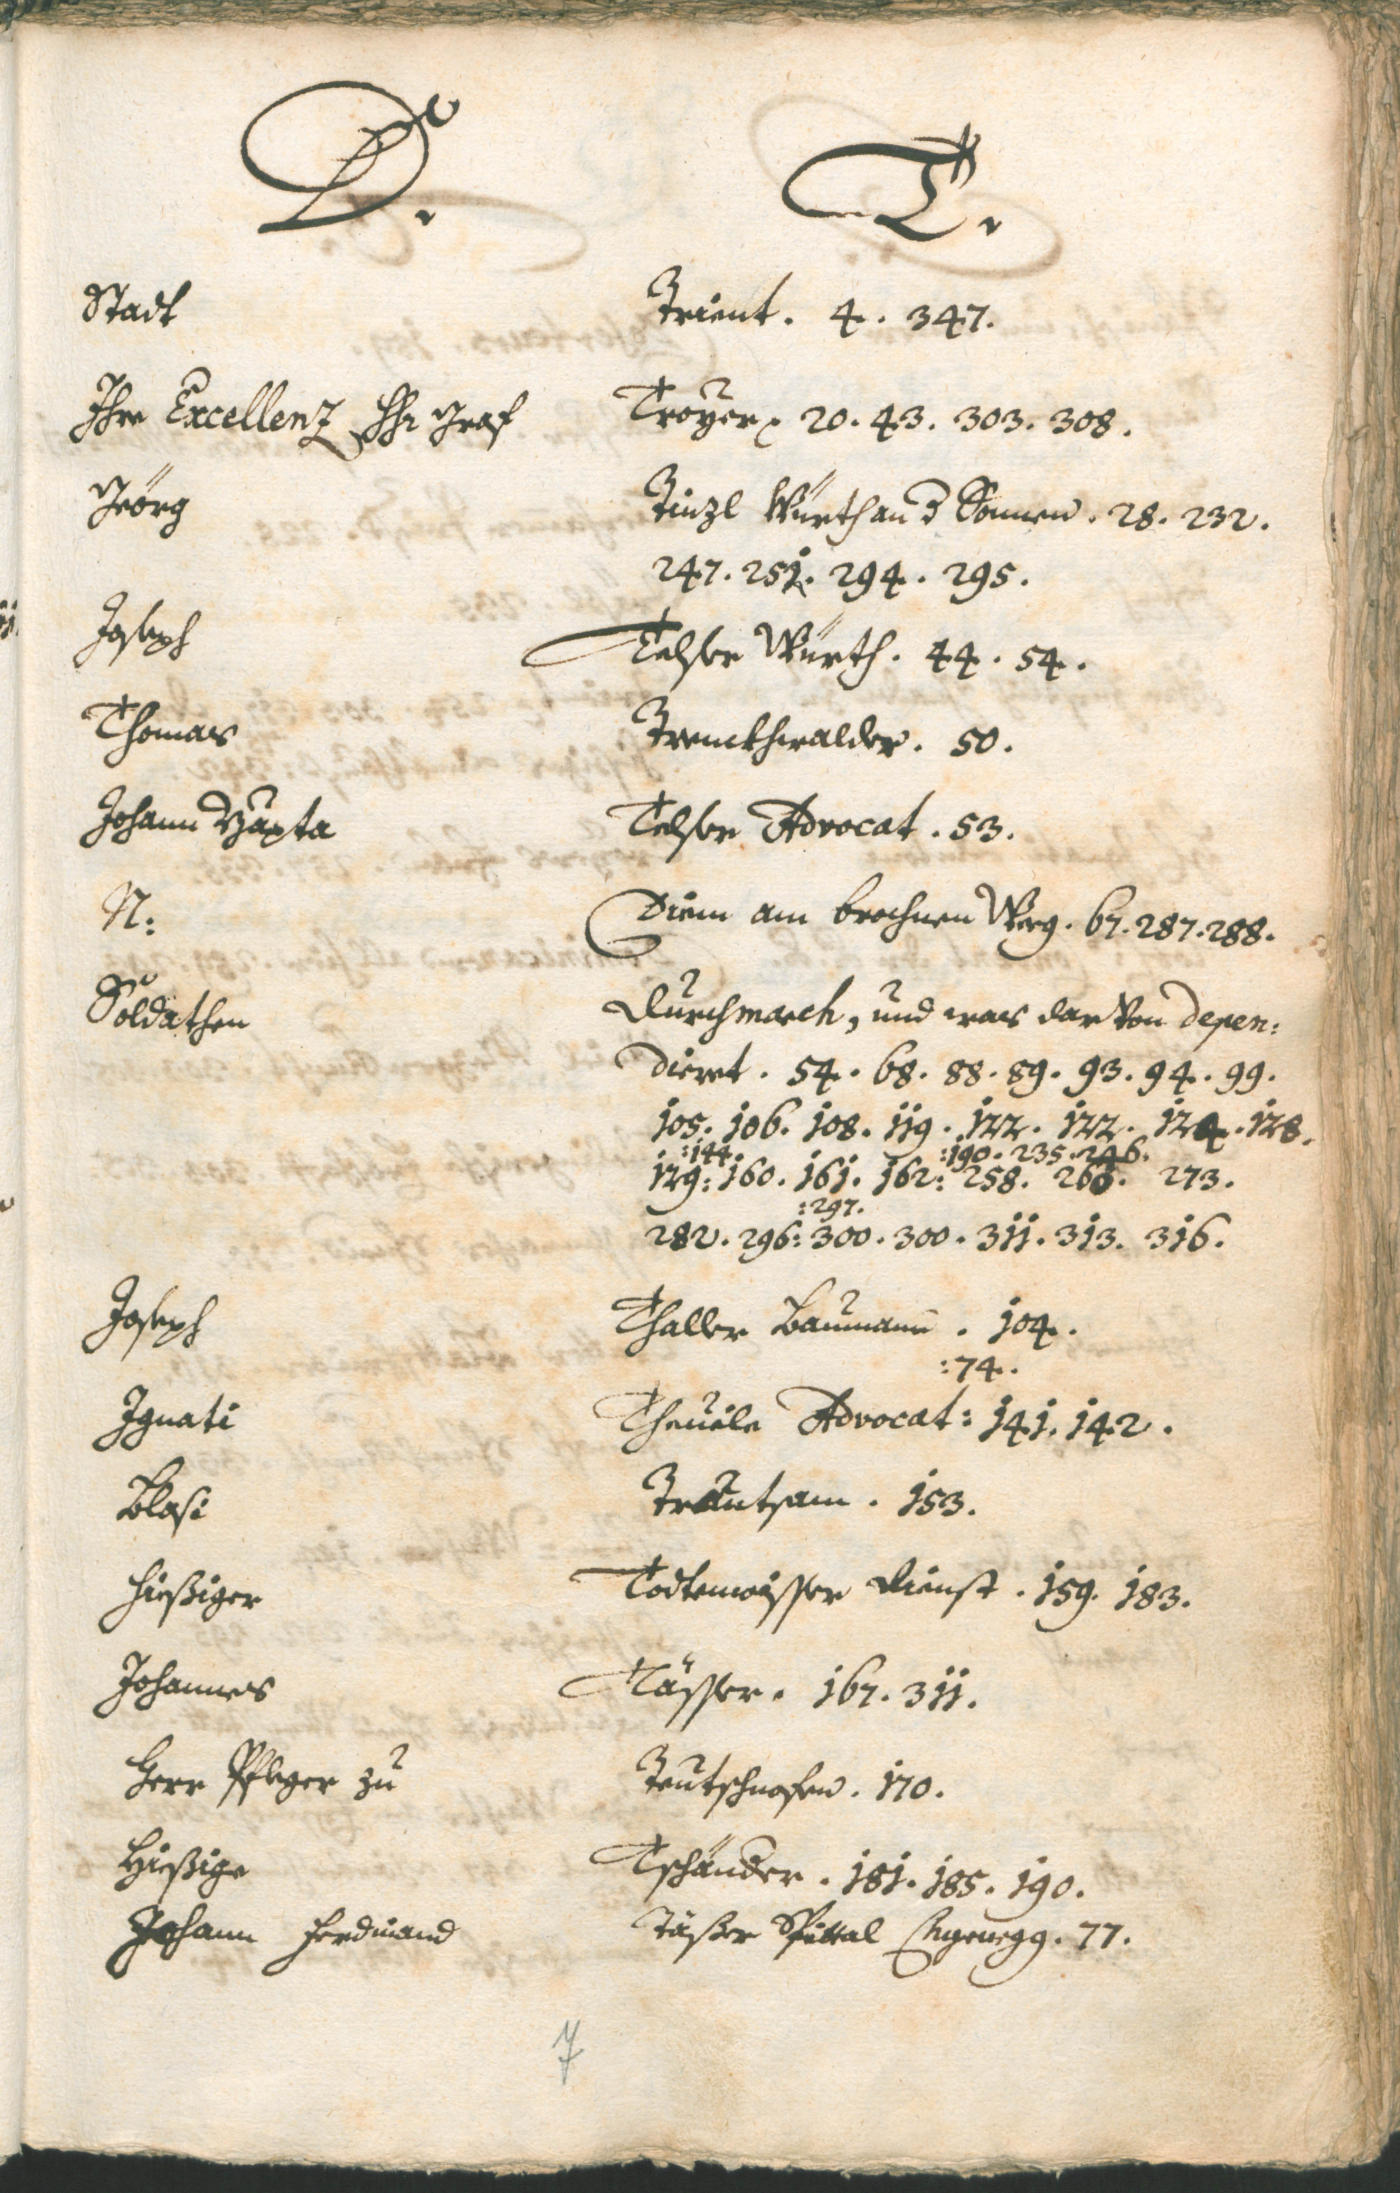 D. T.
Stadt Trient. 4. 347.
Ihre Excellenz Hh: Graf Troÿer. 20. 43. 303. 308.
Geörg Tinzl Würth an d Sonnen. 28. 232.
247. 251. 294. 295.
Joseph Telser Würth. 44. 54.
Thomas Trenckhwalder. 50.
Johann Bapta Telser Advocat. 53.
N: Diem am brochnen Weg. 67. 287. 288.
Soldathen Durchmarch, und was dar von depen:
dieret. 54. 68. 88. 89. 93. 94. 99.
105. 106. 108. 119. 122. 122. 124. 128.
:144. :190. 235. 246.
129: 160. 161. 162: 258. 266. 273.
:297.
282. 296: 300. 300. 311. 313. 316.
Joseph Thaller Baumann. 104.
:74.
Ignati Theuile Advocat: 141. 142.
Blasi Trautsam. 153.
hießiger Dienst. 159. 183.
Johannes Tässer. 167. 311.
Herr Pfleger zu Teutschnofen. 170.
Hießige Tschänder. 181. 185. 190.
Johann Ferdinand Täßer Spittal 77.
7